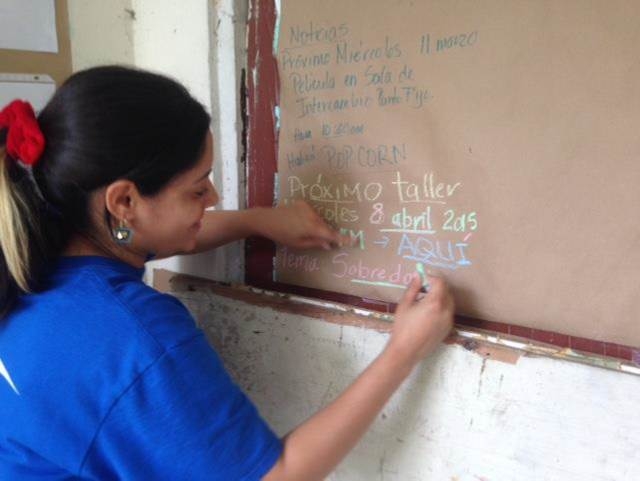 Noticias
Próximo Miércoles 11 marzo
Película en Sala de
Intercambio Punto Fijo
10:30am
Habrá POPCORN
Próximo taller
8 abril 2a5
M → AQUÍ
Tema Sobredo